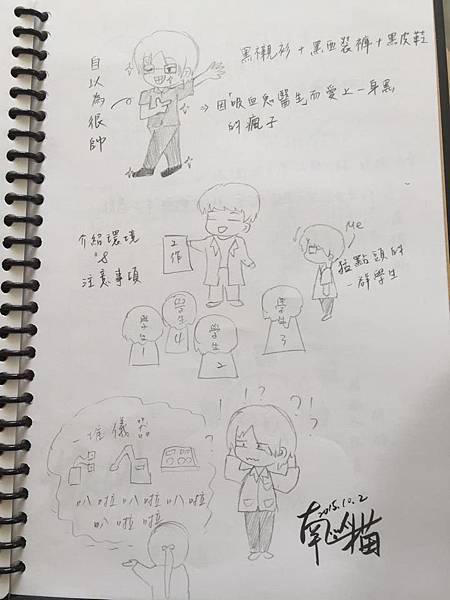 自以為很帥
黑襯衫+黑西裝褲+黑皮鞋
⇒ 因「吸血鬼醫生而愛上一身黑
的瘋子
介紹環境
&
注意事項
工作
Me
猛點頭的
一群學生
學生1
學生4
學生2
學生3
一堆儀器
叭啦叭啦叭啦
叭啦啦
! ! ? !?
?
2015.10.2